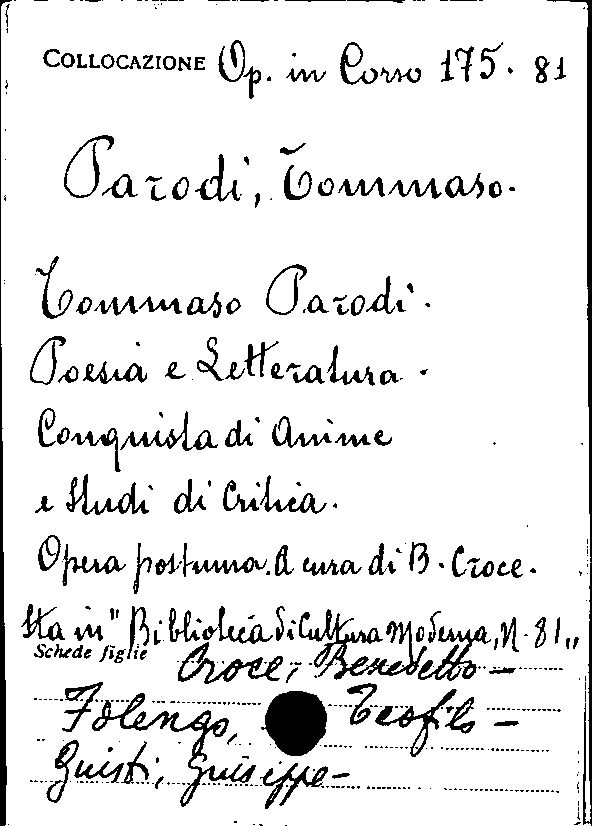 COLLOCAZIONE Op. in Corso 175. 81
Parodi, Tommaso.
Tommaso Parodi.
Poesia e Letteratura.
Conquista di Anime
e Studi di Critica.
Opera postuma. A cura di B. Croce.
Sta in "Biblioteca di Cultura Moderna, N. 81"
Schede figlie Croce, Benedetto -
Folengo, Teofilo -
Guisti, Guiseppe -